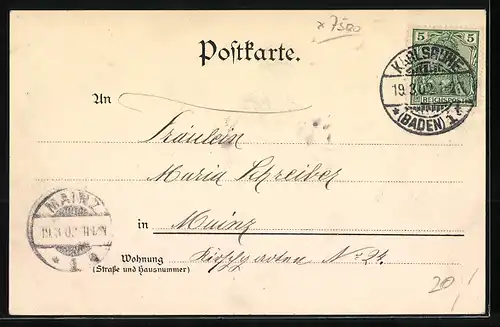 x 7500
Postkarte.
5 5
REICHSPOST
KARLSRUHE
19.3.02.
*(BADEN) 1*
An
Fräulein
Maria Schreiber
MAINZ
19.3.02.
* 1 *
in Mainz
Wohnung
(Straße und Hausnummer)
No 24
20,/